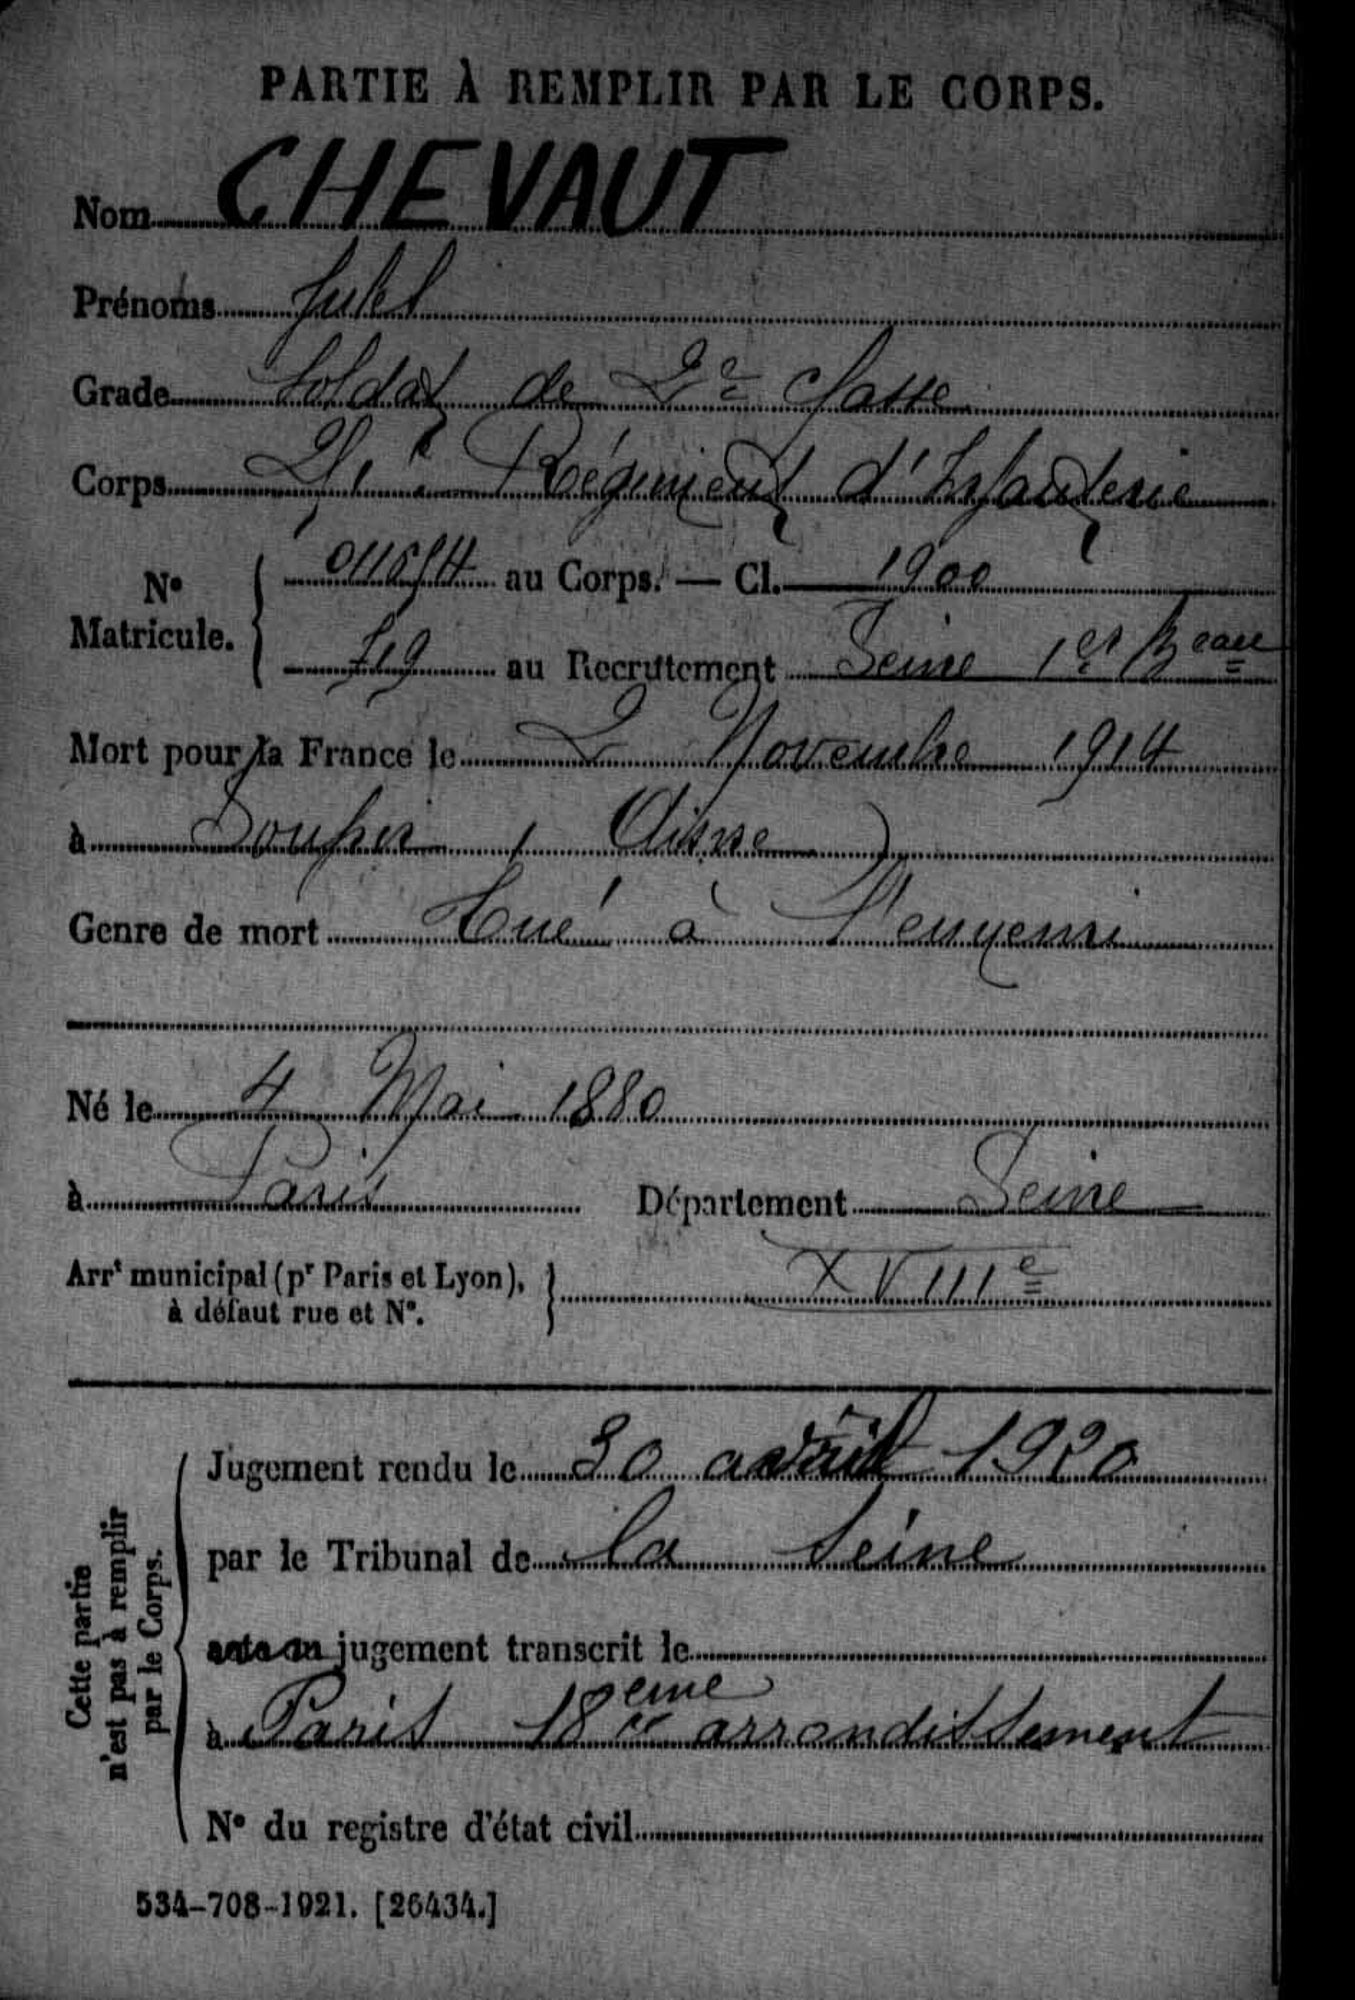 PARTIE À REMPLIR PAR LE CORPS.
Nom CHEVAUT
Prénoms Jules
Grade Soldat de 2e classe
Corps Régiment d'Infanterie
No Matricule. au Corps. — Cl. 1900
719 au Recrutement Seine 1er Beau
Mort pour la France le 2 Novembre 1914
à Soupir (Aisne)
Genre de mort Tué à l'ennemi
Né le 4 Mai 1880
à Paris Département Seine
Arrt municipal (pr Paris et Lyon), à défaut rue et No. XVIIIe
Cette partie n'est pas à remplir par le Corps.
Jugement rendu le 30 avril 1920
par le Tribunal de la Seine
jugement transcrit le
à Paris 18eme arrondissement
No du registre d'état civil
534-708-1921. [26434.]